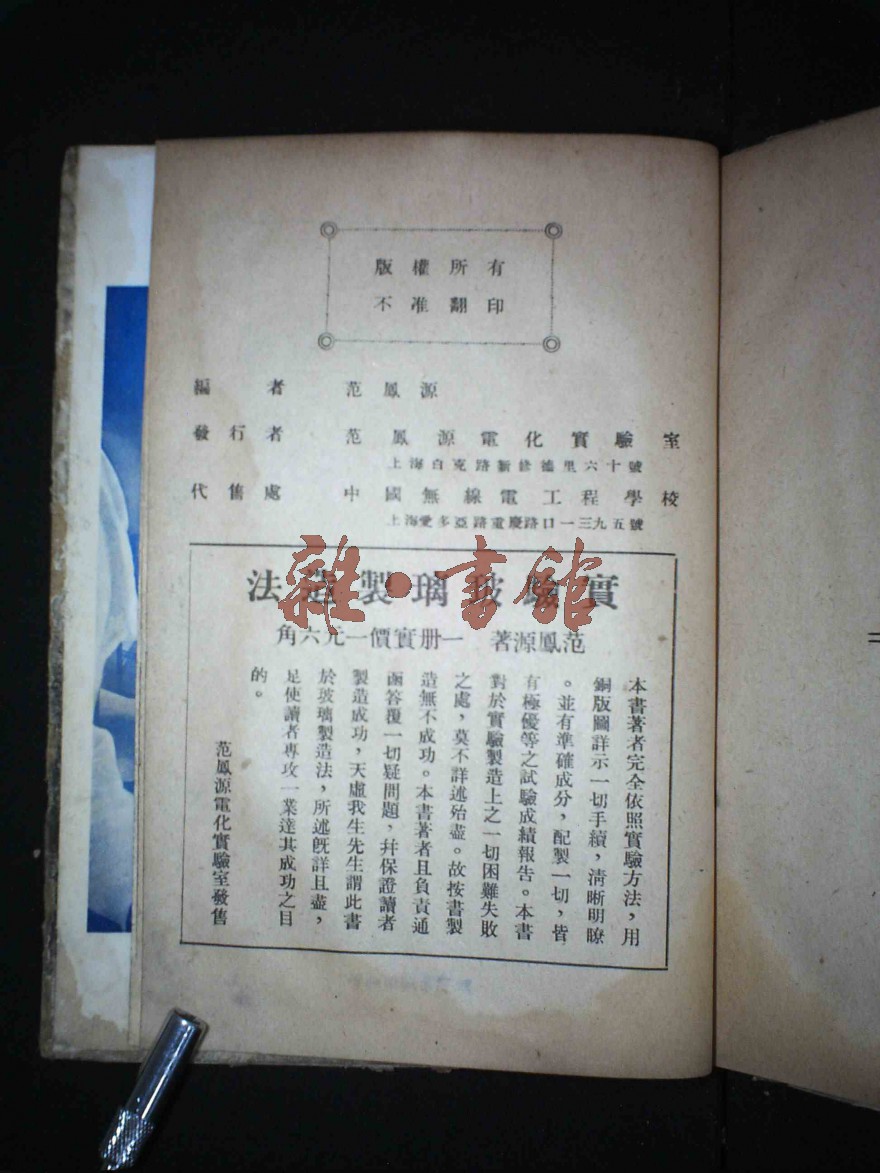 版權所有
不准翻印
編者 范鳳源
發行者 范鳳源電化實驗室
上海白克路新修德里六十號
代售處 中國無線電工程學校
上海愛多亞路重慶路口一三九五號
實驗玻璃製造法
范鳳源著 一册實價一元六角
本書著者完全依照實驗方法，用
銅版圖詳示一切手續，清晰明瞭
。並有準確成分，配製一切，皆
有極優等之試驗成績報告。本書
對於實驗製造上之一切困難失敗
之處，莫不詳述殆盡。故按書製
造無不成功。本書著者且負責通
函答覆一切疑問題，幷保證讀者
製造成功，天虛我生先生謂此書
於玻璃製造法，所述旣詳且盡，
足使讀者專攻一業達其成功之目
的。
范鳳源電化實驗室發售
雜·書館